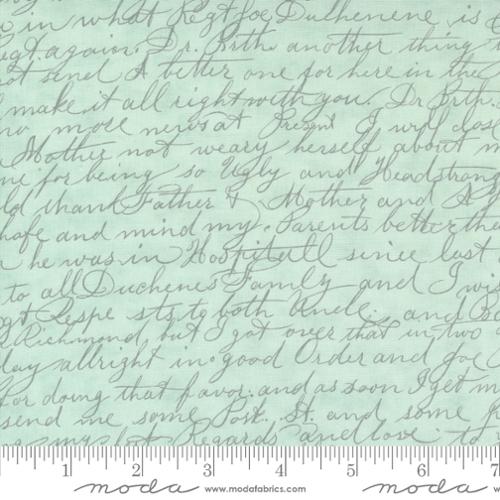 in what Regt Joe Duchenene is
Regt again. Dr. Brth. another thing
not send A better one for here in the
make it all right with you. Dr Brther
no more news at Present I will close
Mother not weary herself about m
me for being so Ugly and Headstrong
ld thank Father & Mother and A
hafe and mind my Parents better tha
he was in Hospitull since last
to all Duchenes Family and I wis
Respe sts to both Uncle. and
Richmond but I got over that in two
day allright in good Order and Joe
for doing that favor. and as soon I get m
send me some Post. St. and some
my Regards and love to
1 2 3 4 5 6 7
moda www.modafabrics.com moda www.modafabrics.com moda